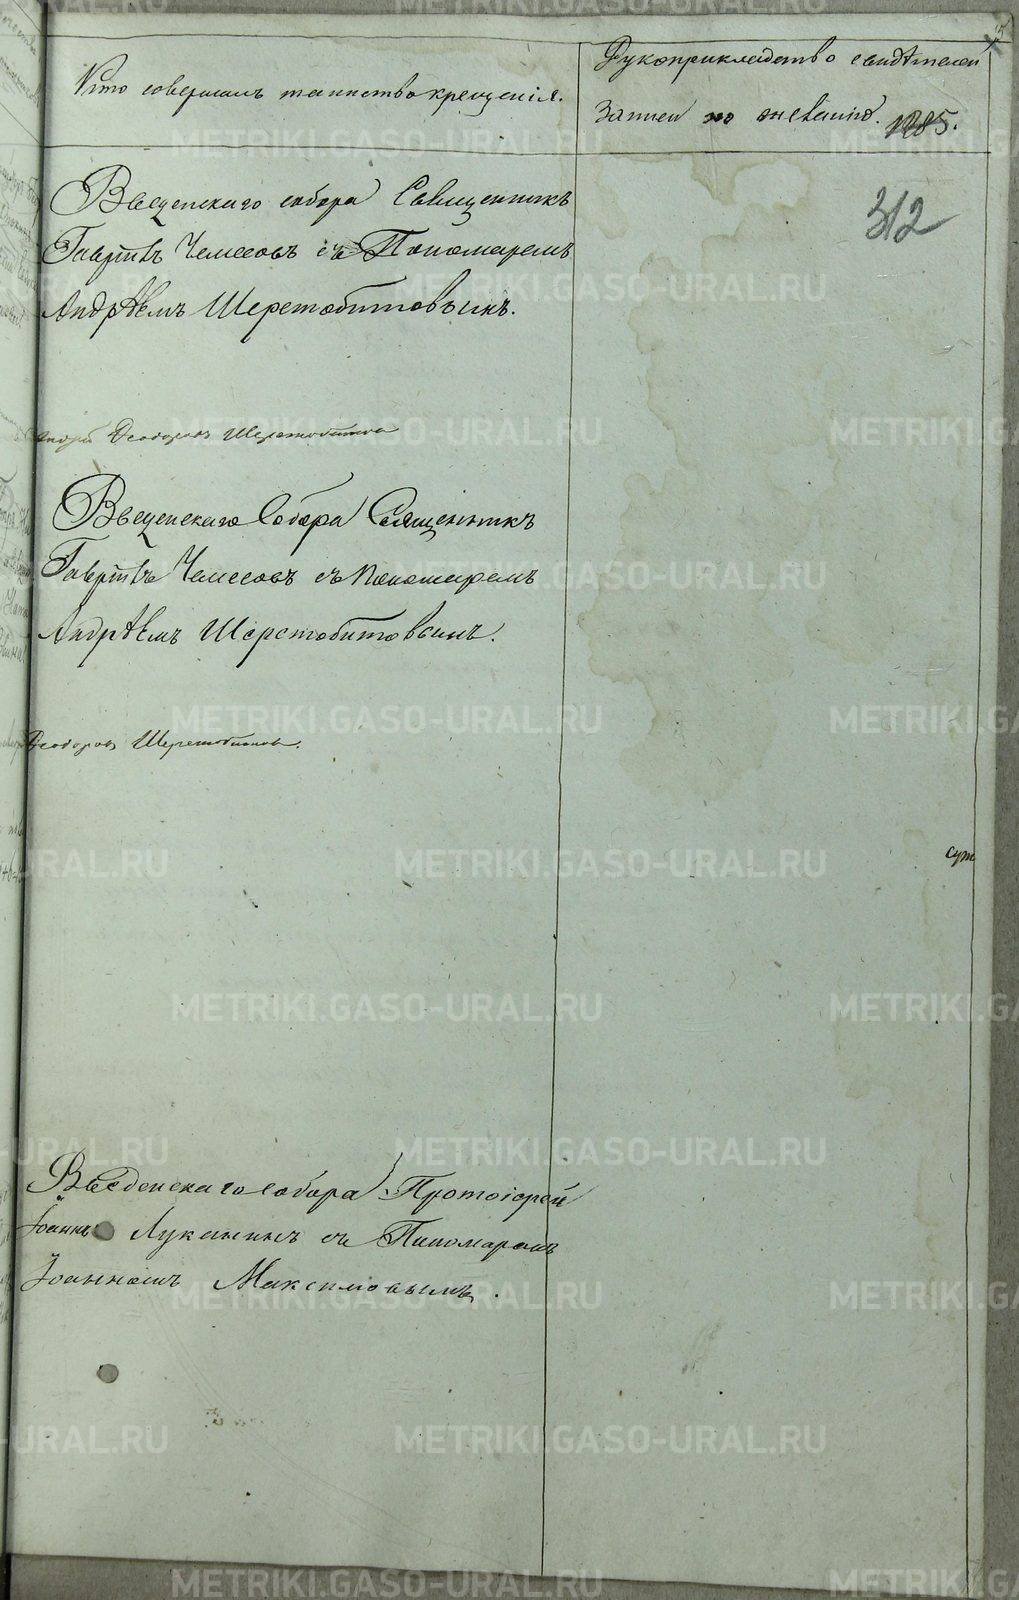 Кто совершалъ таинство крещенія.
Рукоприкладство свидѣтелей
записи по желанію. 1885.
312
Введенскаго собора Священникъ
Гаврiилъ Чемесовъ съ Пономаремъ
Андрѣемъ Шеретобитовымъ.
Ѳеодоровъ Шеретобитовъ
Введенскаго Собора Священникъ
Гаврiилъ Чемесовъ съ Пономаремъ
Андрѣемъ Шеретобитовымъ.
Ѳеодоровъ Шеретобитовъ.
Введенскаго собора Протоіерей
Іоаннъ Луканинъ съ Пономаремъ
Іоанномъ Максимовымъ.
METRIKI.GASO-URAL.RU